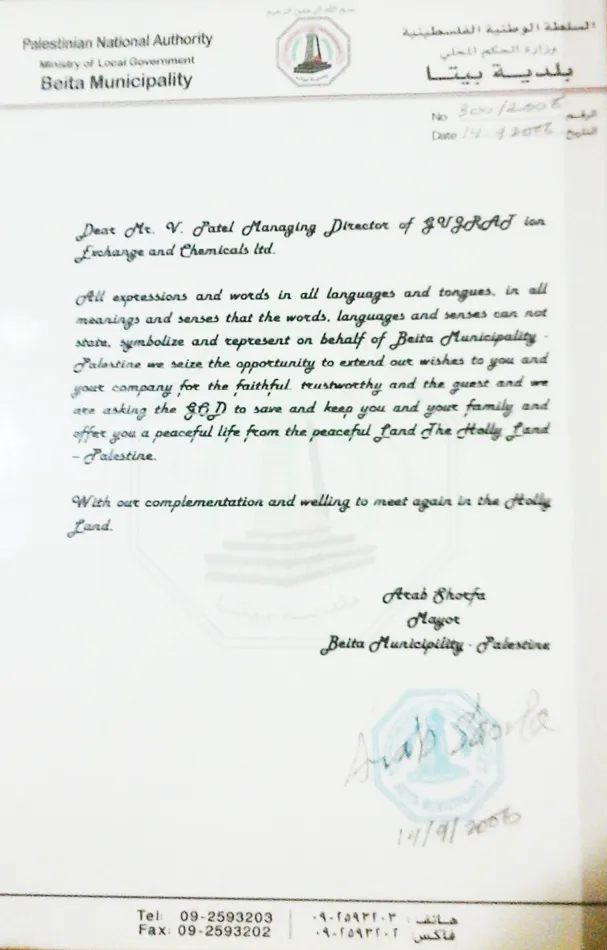 بسم الله الرحمن الرحيم
Palestinian National Authority
Ministry of Local Government
Beita Municipality
السلطة الوطنية الفلسطينية
وزارة الحكم المحلي
بلدية بيتا
No 300/2006 الرقم
Date 14.9.2006 التاريخ
Dear Mr. V. Patel Managing Director of GUJRAT ion
Exchange and Chemicals ltd.
All expressions and words in all languages and tongues, in all
meanings and senses that the words, languages and senses can not
state, symbolize and represent on behalf of Beita Municipality -
Palestine we seize the opportunity to extend our wishes to you and
your company for the faithful, trustworthy and the guest and we
are asking the GOD to save and keep you and your family and
offer you a peaceful life from the peaceful Land The Holly Land
- Palestine.
With our complementation and welling to meet again in the Holly
Land.
Arab Shorfa
Mayor
Beita Municipility - Palestine
Arab Shorfa
14/9/2006
Tel: 09-2593203
Fax: 09-2593202
هاتف: ٠٩-٢٥٩٣٢٠٣
فاكس: ٠٩-٢٥٩٣٢٠٢